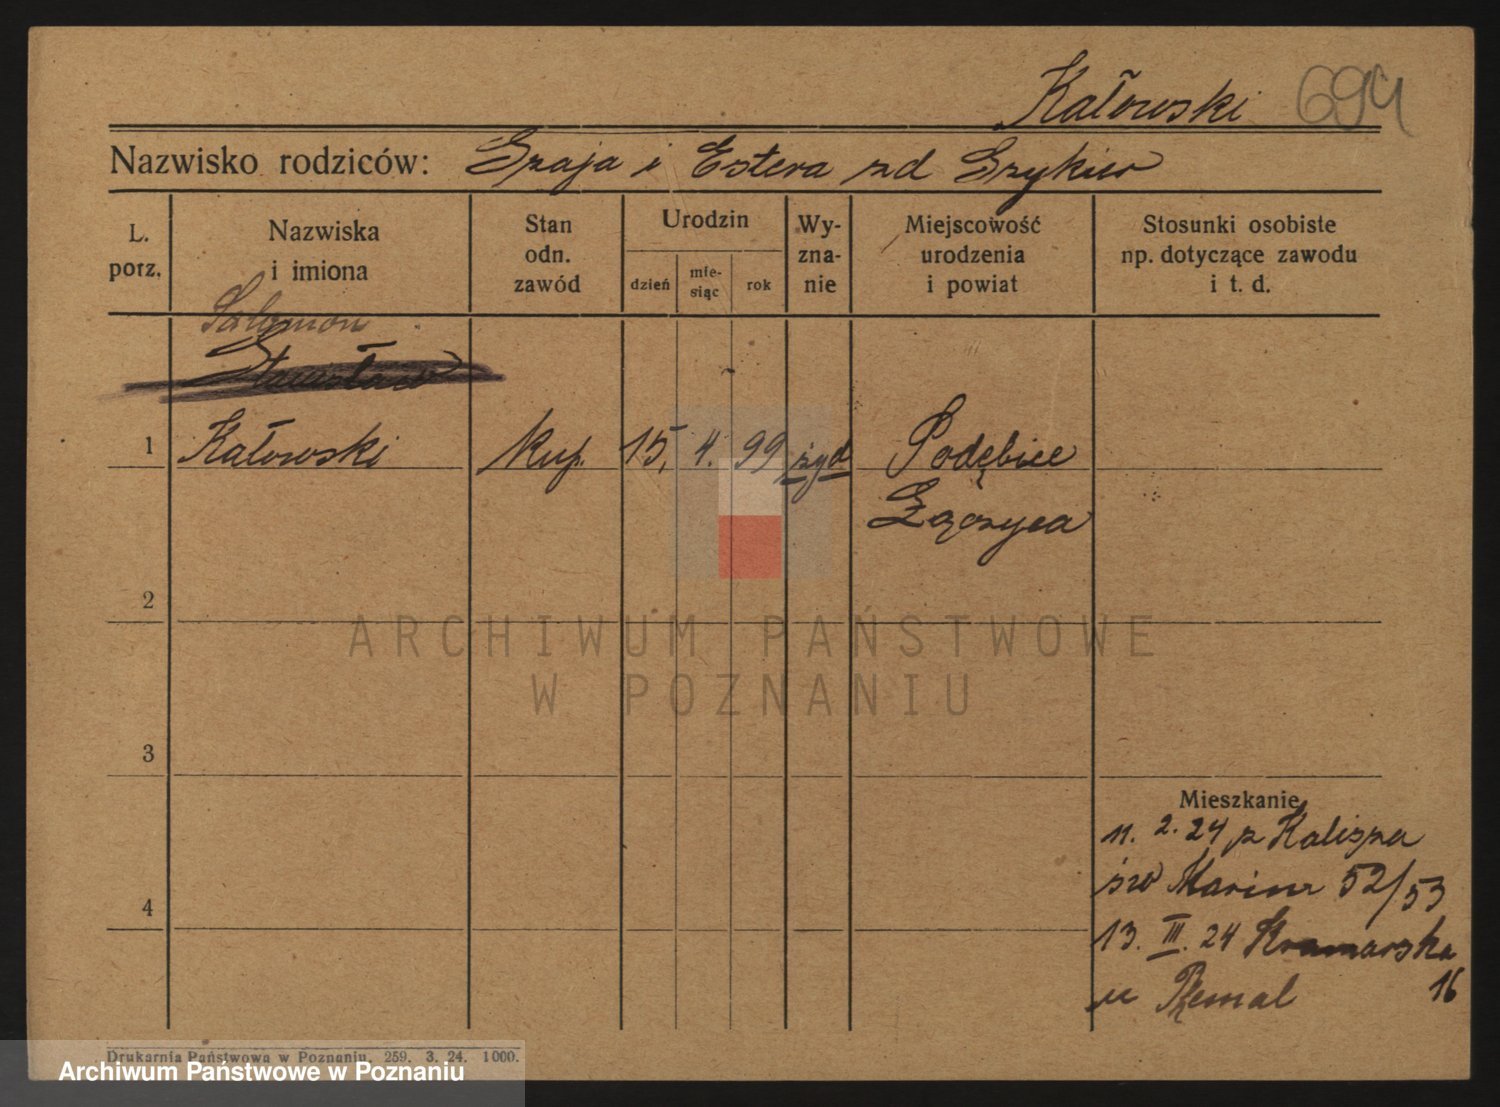 Kałowski 694
Nazwisko rodziców: Szaja i Estera zd Szykier
L. porz.
Nazwiska i imiona
Stan odn. zawód
Urodzin
dzień
mie-siąc
rok
Wy-zna-nie
Miejscowość urodzenia i powiat
Stosunki osobiste np. dotyczące zawodu i t. d.
Salomon
Stanisław
1 Kałowski kup. 15. 4. 99 żyd Podębice
Łęczyca
2
ARCHIWUM PAŃSTWOWE
W POZNANIU
3
Mieszkanie
11. 2. 24 z Kalisza
św Marcin 52/53
4
13. III. 24 Kramarska
16
u
Drukarnia Państwowa w Poznaniu, 259. 3. 24. 1000.
Archiwum Państwowe w Poznaniu